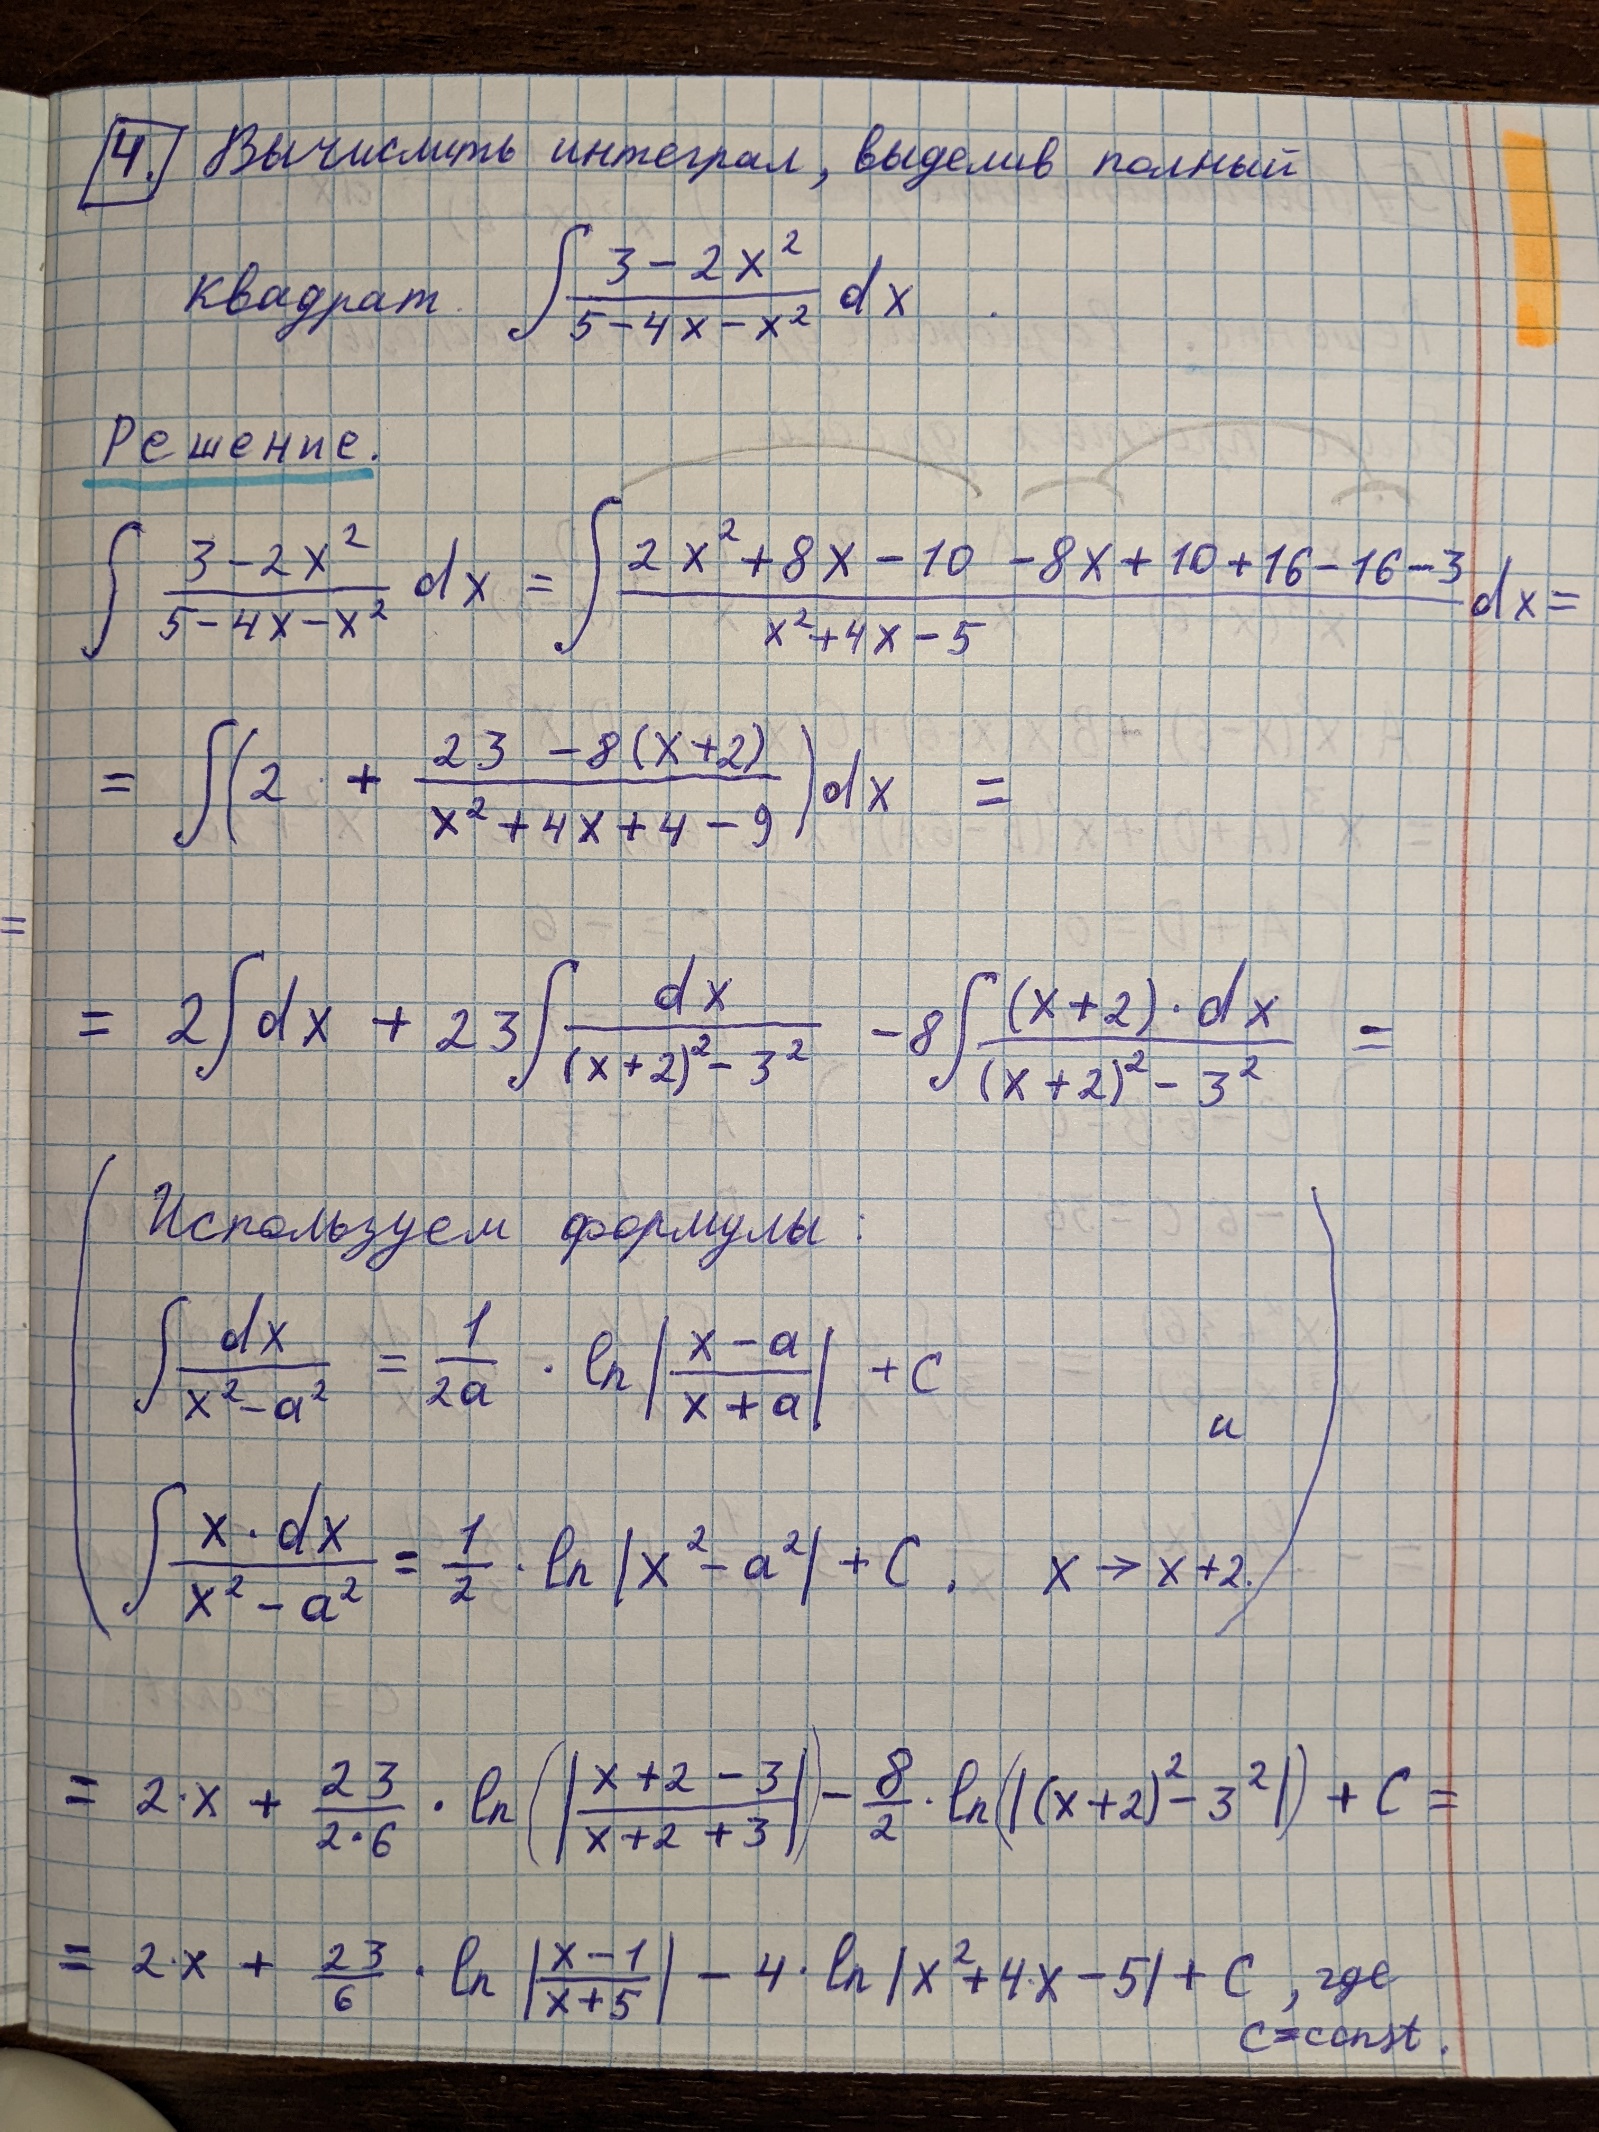 4. Вычислить интеграл, выделив полный
квадрат. ∫ (3 - 2x²)/(5 - 4x - x²) dx .
Решение.
∫ (3 - 2x²)/(5 - 4x - x²) dx = ∫ (2x² + 8x - 10 - 8x + 10 + 16 - 16 - 3)/(x² + 4x - 5) dx =
= ∫ (2 + (23 - 8(x+2))/(x² + 4x + 4 - 9)) dx =
= 2∫dx + 23∫ dx/((x+2)² - 3²) - 8∫ ((x+2)·dx)/((x+2)² - 3²) =
Используем формулы:
∫ dx/(x² - a²) = 1/(2a) · ln|(x - a)/(x + a)| + C и
∫ (x·dx)/(x² - a²) = 1/2 · ln|x² - a²| + C, x → x+2.
= 2·x + 23/(2·6) · ln(|(x+2-3)/(x+2+3)|) - 8/2 · ln(|(x+2)² - 3²|) + C =
= 2·x + 23/6 · ln|(x-1)/(x+5)| - 4·ln|x² + 4·x - 5| + C, где
C=const.